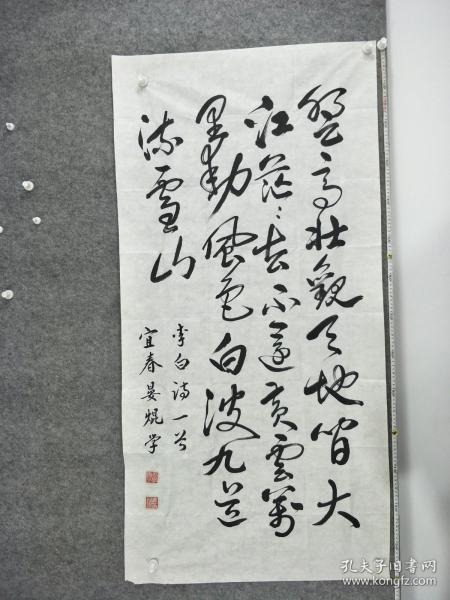 登高壮觀天地间大
江茫〻去不還黄雲萬
里動風色白波九道
流雪山
李白诗一首
宜春晏焜学
孔夫子旧书网
www.kongfz.com